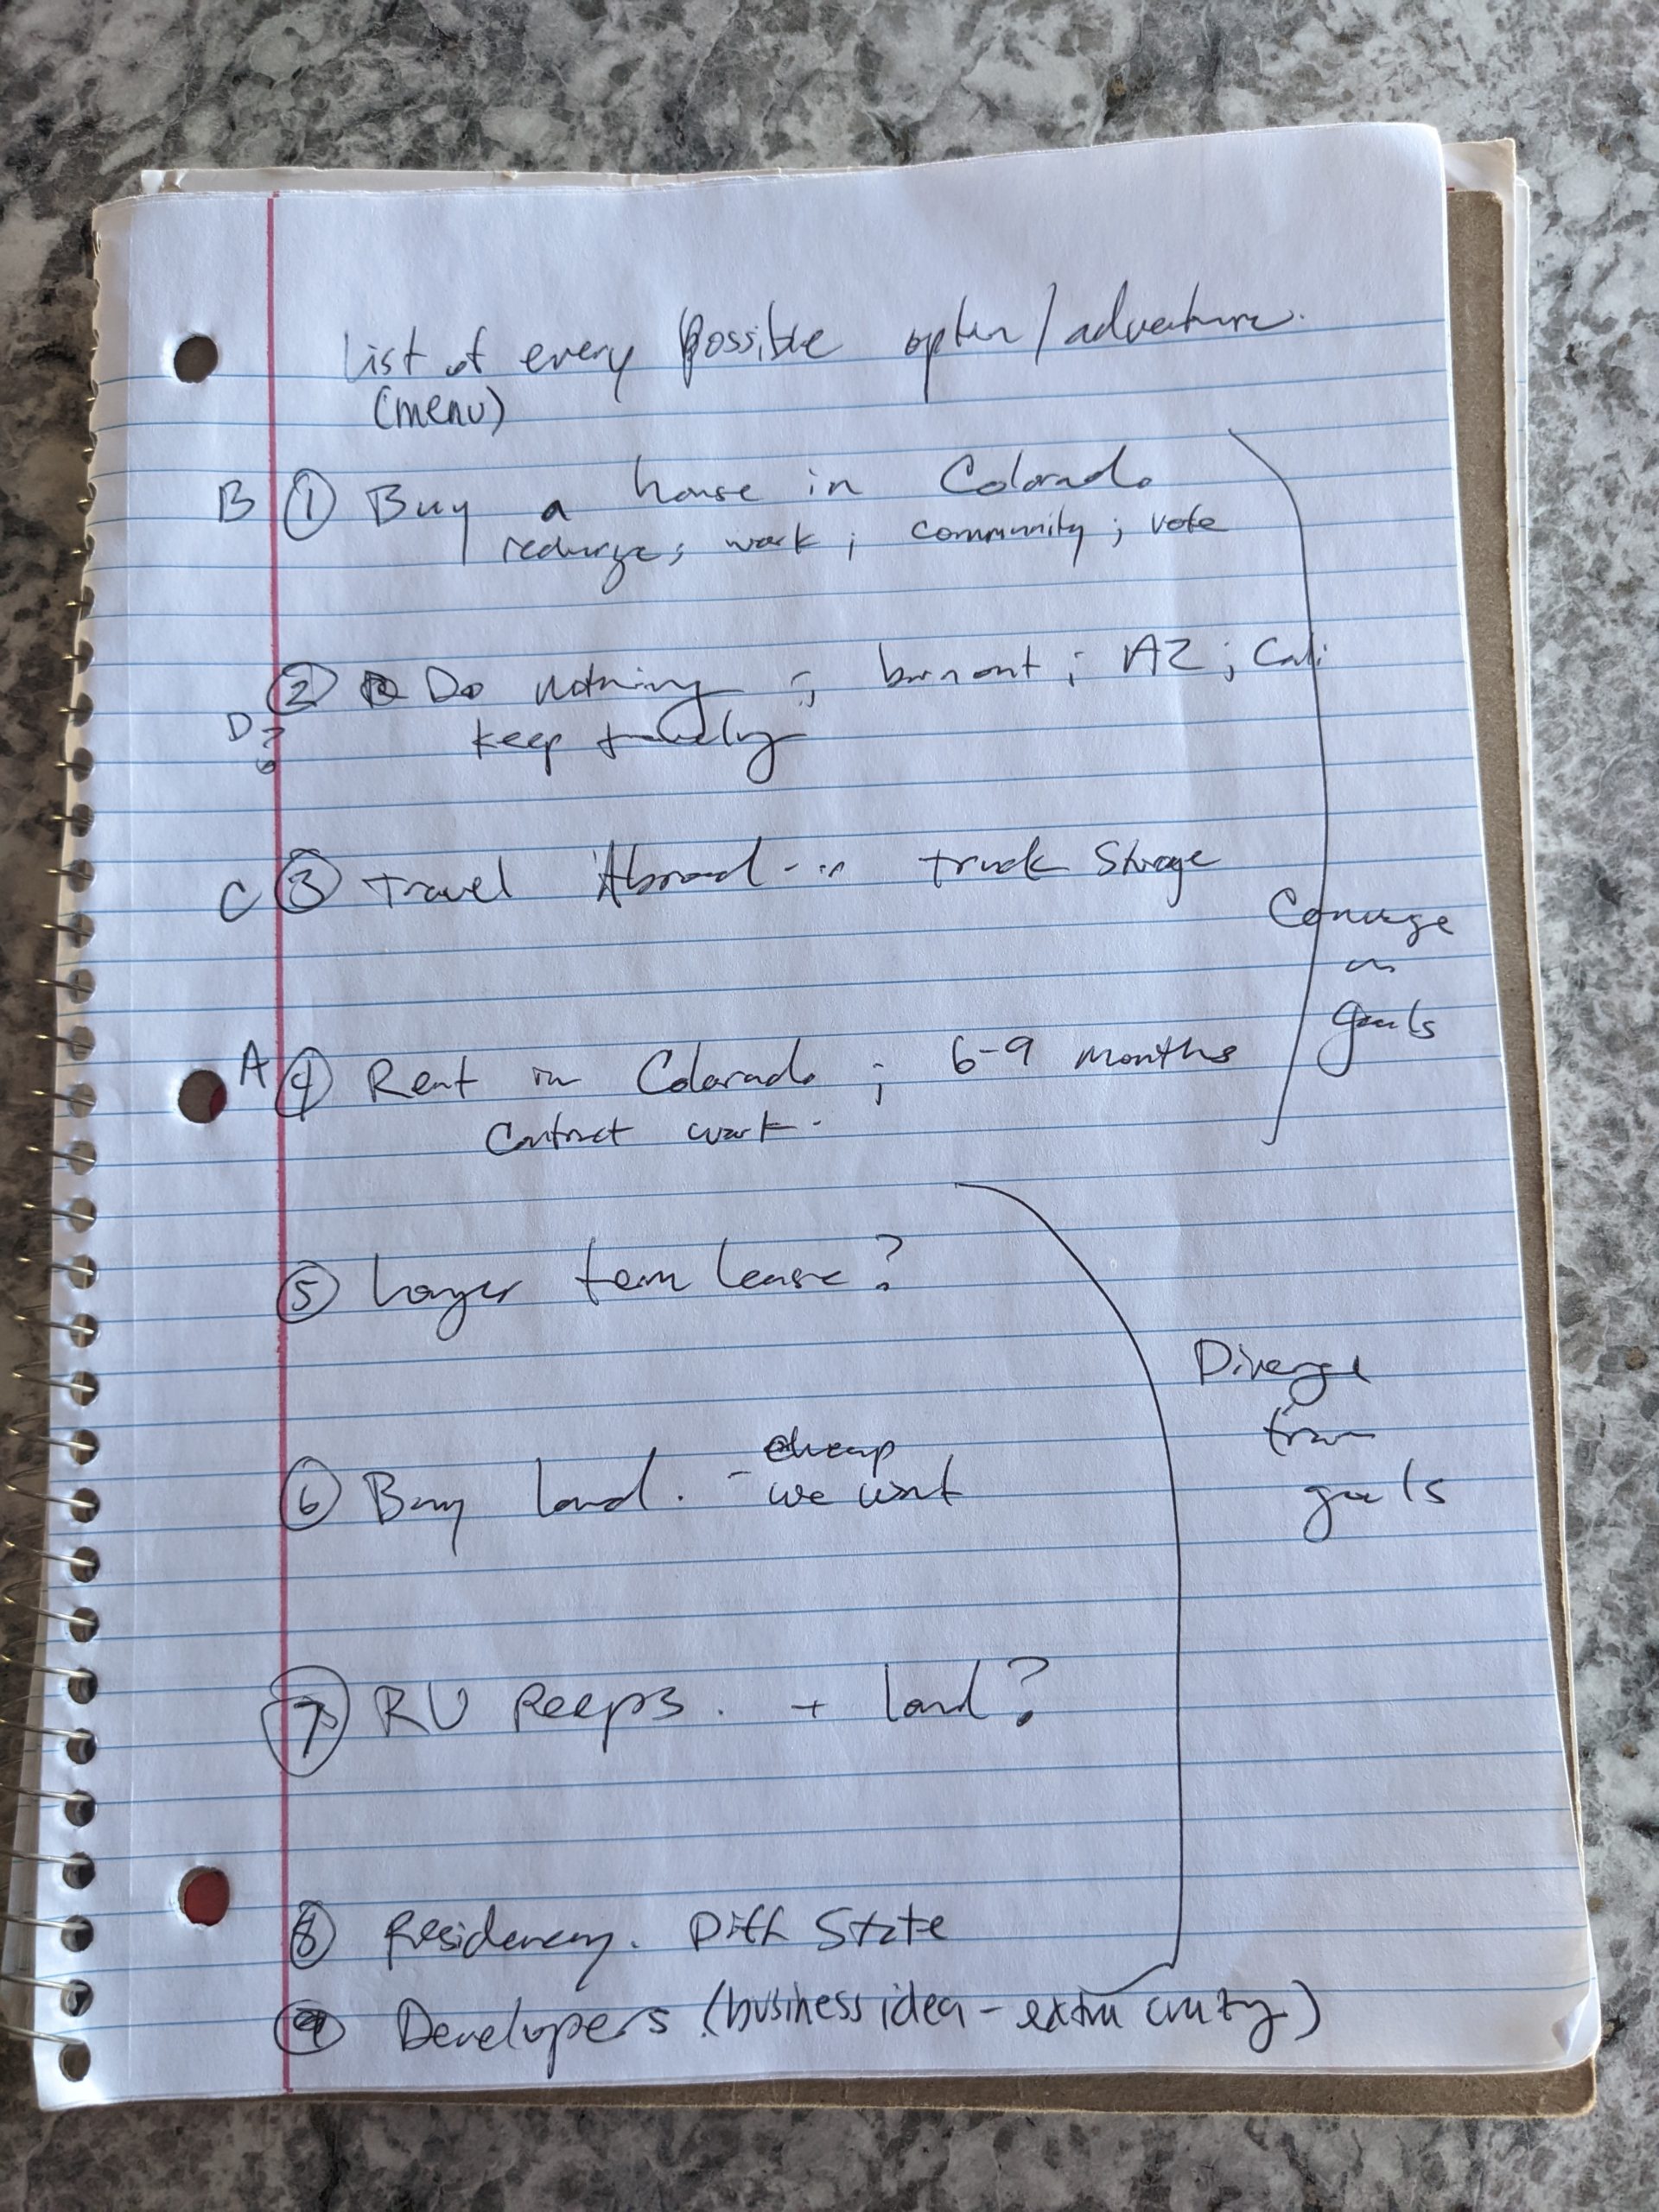 List of every possible option/adventure.
(menu)
B ① Buy a house in Colorado
recharge; work; community; vote
② Do nothing; burnout; AZ; Cali
D?
keep traveling
C ③ Travel Abroad - truck storage
Converge
on
goals
A ④ Rent in Colorado; 6-9 months
Contract work.
⑤ Longer term lease?
Diverge
from
goals
cheap
⑥ Buy land. - we want
⑦ RV Peeps. + land?
⑧ Residency. Diff State
⑨ Developers (business idea - extra crazy)